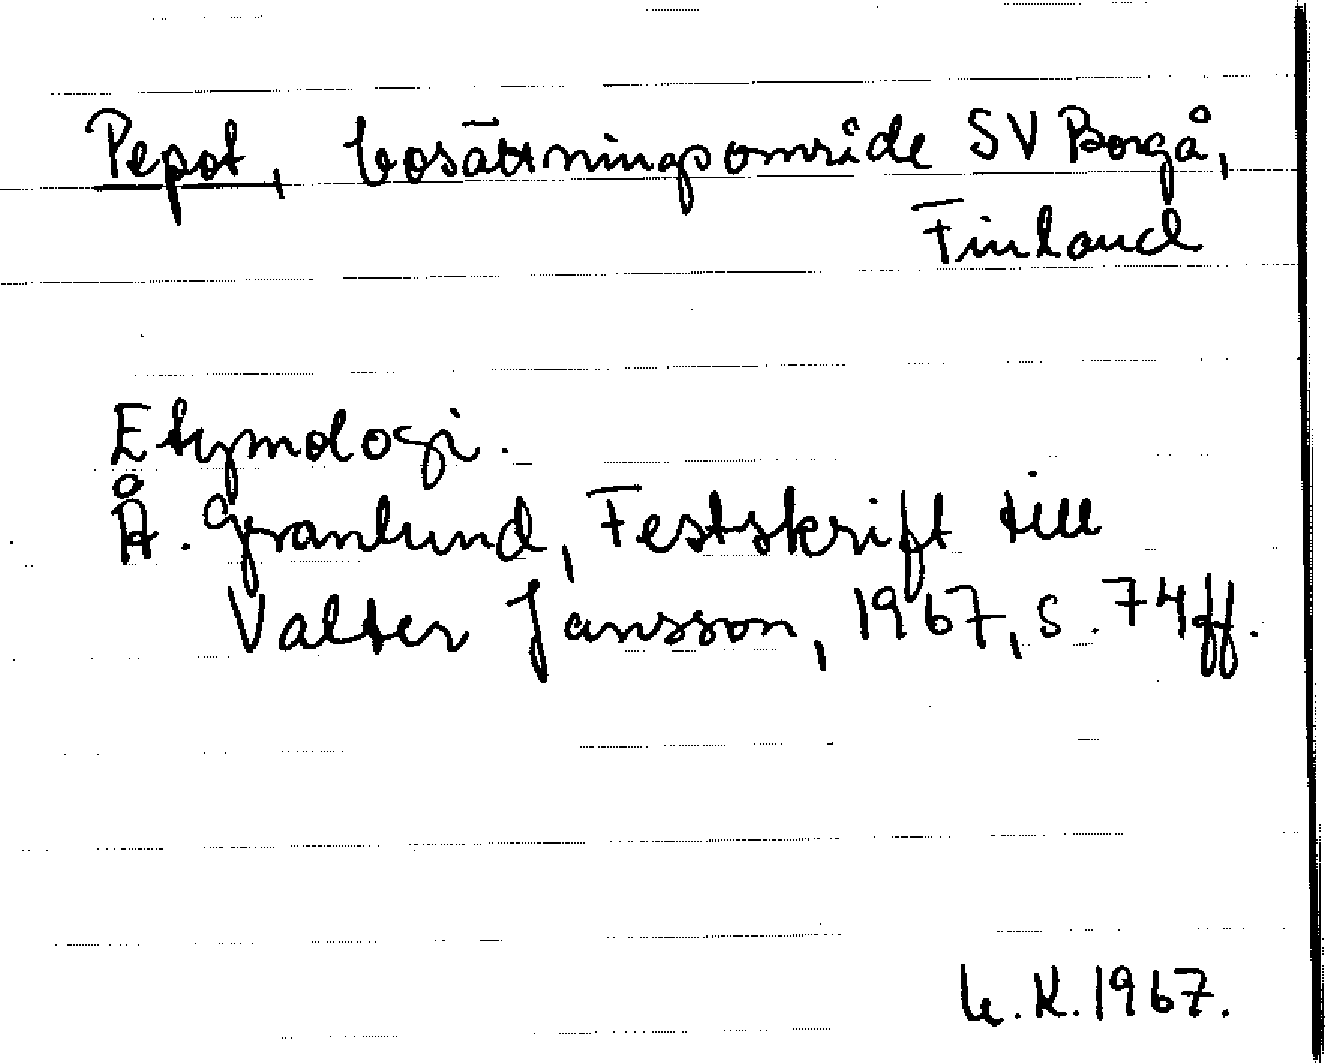 Pepot, bosättningsområde SV Borgå,
Finland
Etymologi.
Å. Granlund, Festskrift till
Valter Jansson, 1967, s. 74ff.
K. 1967.